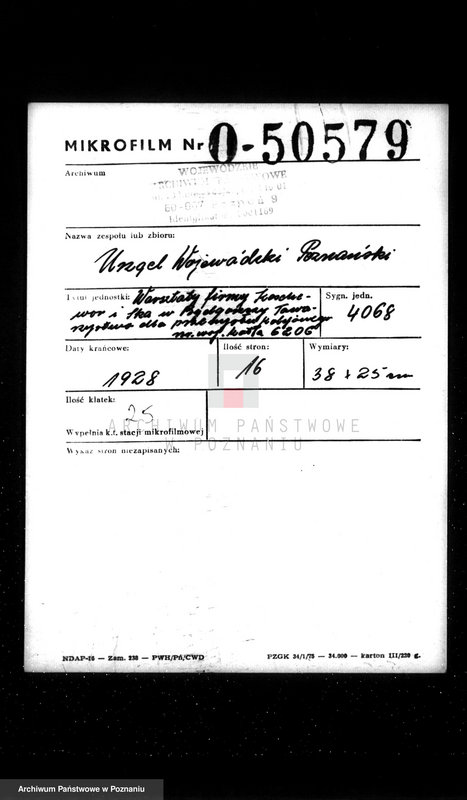 MIKROFILM Nr 0-50579
Archiwum
WOJEWÓDZKIE
Nazwa zespołu lub zbioru:
Urząd Wojewódzki Poznański
Tytuł jednostki: Warsztaty firmy
wor i Ska w Bydgoszczy Towa-
rzystwo dla
nr. wyj. kotła 6206
Sygn. jedn.
4068
Daty krańcowe:
1928
Ilość stron:
16
Wymiary:
38 x 25 cm
Ilość klatek:
25
Wypełnia k.t. stacji mikrofilmowej
ARCHIWUM PAŃSTWOWE
W POZNANIU
Wykaz stron niezapisanych:
NDAP-16 — Zam. 238 — PWH/Pń/CWD
PZGK 34/1/75 — 34.000 — karton III/220 g.
Archiwum Państwowe w Poznaniu